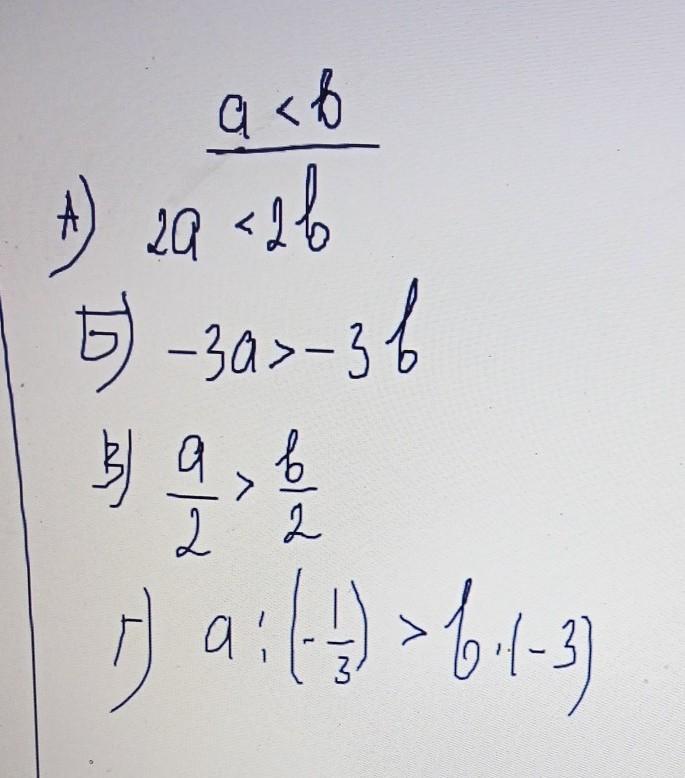 a < b
А) 2a < 2b
Б) -3a > -3b
В) a/2 > b/2
Г) a : (-1/3) > b · (-3)